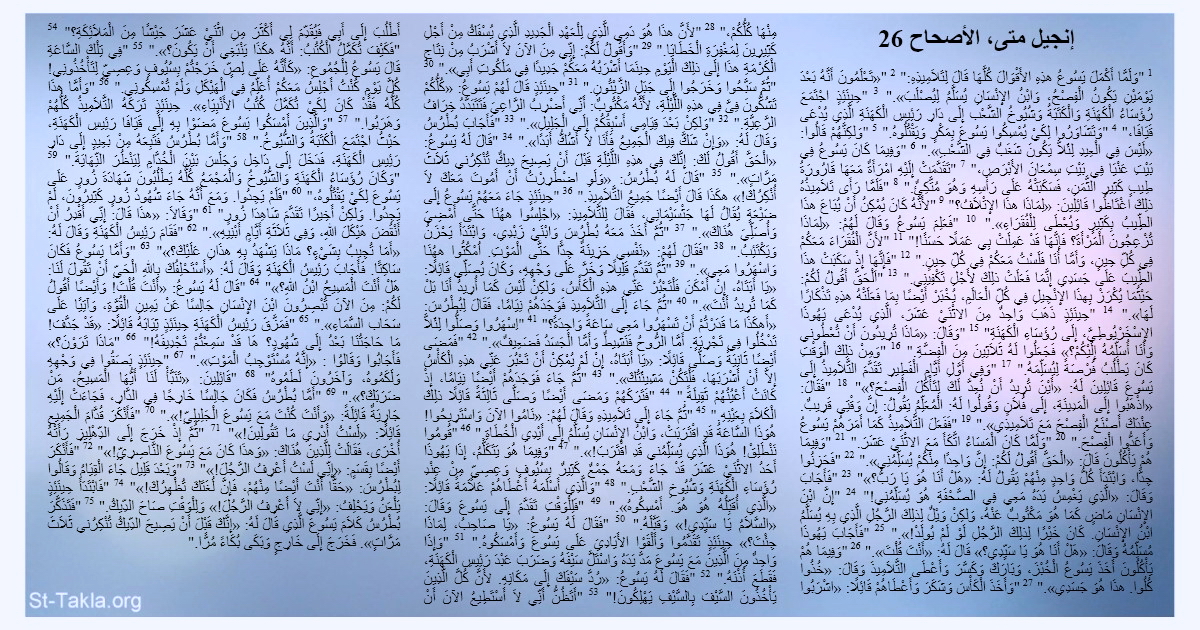 إنجيل متى، الأصحاح 26
1 "وَلَمَّا أَكْمَلَ يَسُوعُ هذِهِ الأَقْوَالَ كُلَّهَا قَالَ لِتَلاَمِيذِهِ: " 2 "«تَعْلَمُونَ أَنَّهُ بَعْدَ
يَوْمَيْنِ يَكُونُ الْفِصْحُ، وَابْنُ الإِنْسَانِ يُسَلَّمُ لِيُصْلَبَ»." 3 "حِينَئِذٍ اجْتَمَعَ
رُؤَسَاءُ الْكَهَنَةِ وَالْكَتَبَةُ وَشُيُوخُ الشَّعْب إِلَى دَارِ رَئِيسِ الْكَهَنَةِ الَّذِي يُدْعَى
قَيَافَا، " 4 "وَتَشَاوَرُوا لِكَيْ يُمْسِكُوا يَسُوعَ بِمَكْرٍ وَيَقْتُلُوهُ." 5 "وَلكِنَّهُمْ قَالُوا:
«لَيْسَ فِي الْعِيدِ لِئَلاَّ يَكُونَ شَغَبٌ فِي الشَّعْبِ»." 6 "وَفِيمَا كَانَ يَسُوعُ فِي
بَيْتِ عَنْيَا فِي بَيْتِ سِمْعَانَ الأَبْرَصِ، " 7 "تَقَدَّمَتْ إِلَيْهِ امْرَأَةٌ مَعَهَا قَارُورَةُ
طِيبٍ كَثِيرِ الثَّمَنِ، فَسَكَبَتْهُ عَلَى رَأْسِهِ وَهُوَ مُتَّكِئٌ." 8 "فَلَمَّا رَأَى تَلاَمِيذُهُ
ذلِكَ اغْتَاظُوا قَائِلِينَ: «لِمَاذَا هذَا الإِتْلاَفُ؟" 9 "لأَنَّهُ كَانَ يُمْكِنُ أَنْ يُبَاعَ هذَا
الطِّيبُ بِكَثِيرٍ وَيُعْطَى لِلْفُقَرَاءِ»." 10 "فَعَلِمَ يَسُوعُ وَقَالَ لَهُمْ: «لِمَاذَا
تُزْعِجُونَ الْمَرْأَةَ؟ فَإِنَّهَا قَدْ عَمِلَتْ بِي عَمَلًا حَسَنًا!" 11 "لأَنَّ الْفُقَرَاءَ مَعَكُمْ
فِي كُلِّ حِينٍ، وَأَمَّا أَنَا فَلَسْتُ مَعَكُمْ فِي كُلِّ حِينٍ." 12 "فَإِنَّهَا إِذْ سَكَبَتْ هذَا
الطِّيبَ عَلَى جَسَدِي إِنَّمَا فَعَلَتْ ذلِكَ لأَجْلِ تَكْفِينِي." 13 "اَلْحَقَّ أَقُولُ لَكُمْ:
حَيْثُمَا يُكْرَزْ بِهذَا الإِنْجِيلِ فِي كُلِّ الْعَالَمِ، يُخْبَرْ أَيْضًا بِمَا فَعَلَتْهُ هذِهِ تَذْكَارًا
لَهَا»." 14 "حِينَئِذٍ ذَهَبَ وَاحِدٌ مِنَ الاثْنَيْ عَشَرَ، الَّذِي يُدْعَى يَهُوذَا
الإِسْخَرْيُوطِيَّ، إِلَى رُؤَسَاءِ الْكَهَنَةِ" 15 "وَقَالَ: «مَاذَا تُرِيدُونَ أَنْ تُعْطُونِي
وَأَنَا أُسَلِّمُهُ إِلَيْكُمْ؟» فَجَعَلُوا لَهُ ثَلاَثِينَ مِنَ الْفِضَّةِ." 16 "وَمِنْ ذلِكَ الْوَقْتِ
كَانَ يَطْلُبُ فُرْصَةً لِيُسَلِّمَهُ." 17 "وَفِي أَوَّلِ أَيَّامِ الْفَطِيرِ تَقَدَّمَ التَّلاَمِيذُ إِلَى
يَسُوعَ قَائِلِينَ لَهُ: «أَيْنَ تُرِيدُ أَنْ نُعِدَّ لَكَ لِتَأْكُلَ الْفِصْحَ؟»" 18 "فَقَالَ:
«اذْهَبُوا إِلَى الْمَدِينَةِ، إِلَى فُلاَنٍ وَقُولُوا لَهُ: الْمُعَلِّمُ يَقُولُ: إِنَّ وَقْتِي قَرِيبٌ.
عِنْدَكَ أَصْنَعُ الْفِصْحَ مَعَ تَلاَمِيذِي»." 19 "فَفَعَلَ التَّلاَمِيذُ كَمَا أَمَرَهُمْ يَسُوعُ
وَأَعَدُّوا الْفِصْحَ." 20 "وَلَمَّا كَانَ الْمَسَاءُ اتَّكَأَ مَعَ الاثْنَيْ عَشَرَ." 21 "وَفِيمَا
هُمْ يَأْكُلُونَ قَالَ: «الْحَقَّ أَقُولُ لَكُمْ: إِنَّ وَاحِدًا مِنْكُمْ يُسَلِّمُنِي»." 22 "فَحَزِنُوا
جِدًّا، وَابْتَدَأَ كُلُّ وَاحِدٍ مِنْهُمْ يَقُولُ لَهُ: «هَلْ أَنَا هُوَ يَا رَبُّ؟»" 23 "فَأَجَابَ
وَقَالَ: «الَّذِي يَغْمِسُ يَدَهُ مَعِي فِي الصَّحْفَةِ هُوَ يُسَلِّمُنِي!" 24 "إِنَّ ابْنَ
الإِنْسَانِ مَاضٍ كَمَا هُوَ مَكْتُوبٌ عَنْهُ، وَلكِنْ وَيْلٌ لِذلِكَ الرَّجُلِ الَّذِي بِهِ يُسَلَّمُ
ابْنُ الإِنْسَانِ. كَانَ خَيْرًا لِذلِكَ الرَّجُلِ لَوْ لَمْ يُولَدْ!»." 25 "فَأَجَابَ يَهُوذَا
مُسَلِّمُهُ وَقَالَ: «هَلْ أَنَا هُوَ يَا سَيِّدِي؟» قَالَ لَهُ: «أَنْتَ قُلْتَ»." 26 "وَفِيمَا هُمْ
يَأْكُلُونَ أَخَذَ يَسُوعُ الْخُبْزَ، وَبَارَكَ وَكَسَّرَ وَأَعْطَى التَّلاَمِيذَ وَقَالَ: «خُذُوا
كُلُوا. هذَا هُوَ جَسَدِي»." 27 "وَأَخَذَ الْكَأْسَ وَشَكَرَ وَأَعْطَاهُمْ قَائِلًا: «اشْرَبُوا
مِنْهَا كُلُّكُمْ، " 28 "لأَنَّ هذَا هُوَ دَمِي الَّذِي لِلْعَهْدِ الْجَدِيدِ الَّذِي يُسْفَكُ مِنْ أَجْلِ
كَثِيرِينَ لِمَغْفِرَةِ الْخَطَايَا." 29 "وَأَقُولُ لَكُمْ: إِنِّي مِنَ الآنَ لاَ أَشْرَبُ مِنْ نِتَاجِ
الْكَرْمَةِ هذَا إِلَى ذلِكَ الْيَوْمِ حِينَمَا أَشْرَبُهُ مَعَكُمْ جَدِيدًا فِي مَلَكُوتِ أَبِي»." 30
"ثُمَّ سَبَّحُوا وَخَرَجُوا إِلَى جَبَلِ الزَّيْتُونِ." 31 "حِينَئِذٍ قَالَ لَهُمْ يَسُوعُ: «كُلُّكُمْ
تَشُكُّونَ فِيَّ فِي هذِهِ اللَّيْلَةِ، لأَنَّهُ مَكْتُوبٌ: أَنِّي أَضْرِبُ الرَّاعِيَ فَتَتَبَدَّدُ خِرَافُ
الرَّعِيَّةِ." 32 "وَلكِنْ بَعْدَ قِيَامِي أَسْبِقُكُمْ إِلَى الْجَلِيلِ»." 33 "فَأَجَابَ بُطْرُسُ
وَقَالَ لَهُ: «وَإِنْ شَكَّ فِيكَ الْجَمِيعُ فَأَنَا لاَ أَشُكُّ أَبَدًا»." 34 "قَالَ لَهُ يَسُوعُ:
«الْحَقَّ أَقُولُ لَكَ: إِنَّكَ فِي هذِهِ اللَّيْلَةِ قَبْلَ أَنْ يَصِيحَ دِيكٌ تُنْكِرُنِي ثَلاَثَ
مَرَّاتٍ»." 35 "قَالَ لَهُ بُطْرُسُ: «وَلَوِ اضْطُرِرْتُ أَنْ أَمُوتَ مَعَكَ لاَ
أُنْكِرُكَ!» هكَذَا قَالَ أَيْضًا جَمِيعُ التَّلاَمِيذِ." 36 "حِينَئِذٍ جَاءَ مَعَهُمْ يَسُوعُ إِلَى
ضَيْعَةٍ يُقَالُ لَهَا جَثْسَيْمَانِي، فَقَالَ لِلتَّلاَمِيذِ: «اجْلِسُوا ههُنَا حَتَّى أَمْضِيَ
وَأُصَلِّيَ هُنَاكَ»." 37 "ثُمَّ أَخَذَ مَعَهُ بُطْرُسَ وَابْنَيْ زَبْدِي، وَابْتَدَأَ يَحْزَنُ
وَيَكْتَئِبُ." 38 "فَقَالَ لَهُمْ: «نَفْسِي حَزِينَةٌ جِدًّا حَتَّى الْمَوْتِ. اُمْكُثُوا ههُنَا
وَاسْهَرُوا مَعِي»." 39 "ثُمَّ تَقَدَّمَ قَلِيلًا وَخَرَّ عَلَى وَجْهِهِ، وَكَانَ يُصَلِّي قَائِلًا:
«يَا أَبَتَاهُ، إِنْ أَمْكَنَ فَلْتَعْبُرْ عَنِّي هذِهِ الْكَأْسُ، وَلكِنْ لَيْسَ كَمَا أُرِيدُ أَنَا بَلْ
كَمَا تُرِيدُ أَنْتَ»." 40 "ثُمَّ جَاءَ إِلَى التَّلاَمِيذِ فَوَجَدَهُمْ نِيَامًا، فَقَالَ لِبُطْرُسَ:
«أَهكَذَا مَا قَدَرْتُمْ أَنْ تَسْهَرُوا مَعِي سَاعَةً وَاحِدَةً؟" 41 "اِسْهَرُوا وَصَلُّوا لِئَلاَّ
تَدْخُلُوا فِي تَجْرِبَةٍ. أَمَّا الرُّوحُ فَنَشِيطٌ وَأَمَّا الْجَسَدُ فَضَعِيفٌ»." 42 "فَمَضَى
أَيْضًا ثَانِيَةً وَصَلَّى قَائِلًا: «يَا أَبَتَاهُ، إِنْ لَمْ يُمْكِنْ أَنْ تَعْبُرَ عَنِّي هذِهِ الْكَأْسُ
إِلاَّ أَنْ أَشْرَبَهَا، فَلْتَكُنْ مَشِيئَتُكَ»." 43 "ثُمَّ جَاءَ فَوَجَدَهُمْ أَيْضًا نِيَامًا، إِذْ
كَانَتْ أَعْيُنُهُمْ ثَقِيلَةً." 44 "فَتَرَكَهُمْ وَمَضَى أَيْضًا وَصَلَّى ثَالِثَةً قَائِلًا ذلِكَ
الْكَلاَمَ بِعَيْنِهِ." 45 "ثُمَّ جَاءَ إِلَى تَلاَمِيذِهِ وَقَالَ لَهُمْ: «نَامُوا الآنَ وَاسْتَرِيحُوا!
هُوَذَا السَّاعَةُ قَدِ اقْتَرَبَتْ، وَابْنُ الإِنْسَانِ يُسَلَّمُ إِلَى أَيْدِي الْخُطَاةِ." 46 "قُومُوا
نَنْطَلِقْ! هُوَذَا الَّذِي يُسَلِّمُنِي قَدِ اقْتَرَبَ!»." 47 "وَفِيمَا هُوَ يَتَكَلَّمُ، إِذَا يَهُوذَا
أَحَدُ الاثْنَيْ عَشَرَ قَدْ جَاءَ وَمَعَهُ جَمْعٌ كَثِيرٌ بِسُيُوفٍ وَعِصِيٍّ مِنْ عِنْدِ
رُؤَسَاءِ الْكَهَنَةِ وَشُيُوخِ الشَّعْبِ." 48 "وَالَّذِي أَسْلَمَهُ أَعْطَاهُمْ عَلاَمَةً قَائِلًا:
«الَّذِي أُقَبِّلُهُ هُوَ هُوَ. أَمْسِكُوهُ»." 49 "فَلِلْوَقْتِ تَقَدَّمَ إِلَى يَسُوعَ وَقَالَ:
«السَّلاَمُ يَا سَيِّدِي!» وَقَبَّلَهُ." 50 "فَقَالَ لَهُ يَسُوعُ: «يَا صَاحِبُ، لِمَاذَا
جِئْتَ؟» حِينَئِذٍ تَقَدَّمُوا وَأَلْقَوْا الأَيَادِيَ عَلَى يَسُوعَ وَأَمْسَكُوهُ." 51 "وَإِذَا
وَاحِدٌ مِنَ الَّذِينَ مَعَ يَسُوعَ مَدَّ يَدَهُ وَاسْتَلَّ سَيْفَهُ وَضَرَبَ عَبْدَ رَئِيسِ الْكَهَنَةِ،
فَقَطَعَ أُذْنَهُ." 52 "فَقَالَ لَهُ يَسُوعُ: «رُدَّ سَيْفَكَ إِلَى مَكَانِهِ. لأَنَّ كُلَّ الَّذِينَ
يَأْخُذُونَ السَّيْفَ بِالسَّيْفِ يَهْلِكُونَ!" 53 "أَتَظُنُّ أَنِّي لاَ أَسْتَطِيعُ الآنَ أَنْ
أَطْلُبَ إِلَى أَبِي فَيُقَدِّمَ لِي أَكْثَرَ مِنِ اثْنَيْ عَشَرَ جَيْشًا مِنَ الْمَلاَئِكَةِ؟" 54
"فَكَيْفَ تُكَمَّلُ الْكُتُبُ: أَنَّهُ هكَذَا يَنْبَغِي أَنْ يَكُونَ؟»." 55 "فِي تِلْكَ السَّاعَةِ
قَالَ يَسُوعُ لِلْجُمُوعِ: «كَأَنَّهُ عَلَى لِصٍّ خَرَجْتُمْ بِسُيُوفٍ وَعِصِيٍّ لِتَأْخُذُونِي!
كُلَّ يَوْمٍ كُنْتُ أَجْلِسُ مَعَكُمْ أُعَلِّمُ فِي الْهَيْكَلِ وَلَمْ تُمْسِكُونِي." 56 "وَأَمَّا هذَا
كُلُّهُ فَقَدْ كَانَ لِكَيْ تُكَمَّلَ كُتُبُ الأَنْبِيَاءِ». حِينَئِذٍ تَرَكَهُ التَّلاَمِيذُ كُلُّهُمْ
وَهَرَبُوا." 57 "وَالَّذِينَ أَمْسَكُوا يَسُوعَ مَضَوْا بِهِ إِلَى قَيَافَا رَئِيسِ الْكَهَنَةِ،
حَيْثُ اجْتَمَعَ الْكَتَبَةُ وَالشُّيُوخُ." 58 "وَأَمَّا بُطْرُسُ فَتَبِعَهُ مِنْ بَعِيدٍ إِلَى دَارِ
رَئِيسِ الْكَهَنَةِ، فَدَخَلَ إِلَى دَاخِل وَجَلَسَ بَيْنَ الْخُدَّامِ لِيَنْظُرَ النِّهَايَةَ." 59
"وَكَانَ رُؤَسَاءُ الْكَهَنَةِ وَالشُّيُوخُ وَالْمَجْمَعُ كُلُّهُ يَطْلُبُونَ شَهَادَةَ زُورٍ عَلَى
يَسُوعَ لِكَيْ يَقْتُلُوهُ،" 60 "فَلَمْ يَجِدُوا. وَمَعَ أَنَّهُ جَاءَ شُهُودُ زُورٍ كَثِيرُونَ، لَمْ
يَجِدُوا. وَلكِنْ أَخِيرًا تَقَدَّمَ شَاهِدَا زُورٍ" 61 "وَقَالاَ: «هذَا قَالَ: إِنِّي أَقْدِرُ أَنْ
أَنْقُضَ هَيْكَلَ اللهِ، وَفِي ثَلاَثَةِ أَيَّامٍ أَبْنِيهِ»." 62 "فَقَامَ رَئِيسُ الْكَهَنَةِ وَقَالَ لَهُ:
«أَمَا تُجِيبُ بِشَيْءٍ؟ مَاذَا يَشْهَدُ بِهِ هذَانِ عَلَيْكَ؟»" 63 "وَأَمَّا يَسُوعُ فَكَانَ
سَاكِتًا. فَأَجَابَ رَئِيسُ الْكَهَنَةِ وَقَالَ لَهُ: «أَسْتَحْلِفُكَ بِاللهِ الْحَيِّ أَنْ تَقُولَ لَنَا:
هَلْ أَنْتَ الْمَسِيحُ ابْنُ اللهِ؟»" 64 "قَالَ لَهُ يَسُوعُ: «أَنْتَ قُلْتَ! وَأَيْضًا أَقُولُ
لَكُمْ: مِنَ الآنَ تُبْصِرُونَ ابْنَ الإِنْسَانِ جَالِسًا عَنْ يَمِينِ الْقُوَّةِ، وَآتِيًا عَلَى
سَحَابِ السَّمَاءِ»." 65 "فَمَزَّقَ رَئِيسُ الْكَهَنَةِ حِينَئِذٍ ثِيَابَهُ قَائِلًا: «قَدْ جَدَّفَ!
مَا حَاجَتُنَا بَعْدُ إِلَى شُهُودٍ؟ هَا قَدْ سَمِعْتُمْ تَجْدِيفَهُ!" 66 "مَاذَا تَرَوْنَ؟»
فَأَجَابُوا وَقَالُوا: «إِنَّهُ مُسْتَوْجِبُ الْمَوْتِ»." 67 "حِينَئِذٍ بَصَقُوا فِي وَجْهِهِ
وَلَكَمُوهُ، وَآخَرُونَ لَطَمُوهُ" 68 "قَائِلِينَ: «تَنَبَّأْ لَنَا أَيُّهَا الْمَسِيحُ، مَنْ
ضَرَبَكَ؟»." 69 "أَمَّا بُطْرُسُ فَكَانَ جَالِسًا خَارِجًا فِي الدَّارِ، فَجَاءَتْ إِلَيْهِ
جَارِيَةٌ قَائِلَةً: «وَأَنْتَ كُنْتَ مَعَ يَسُوعَ الْجَلِيلِيِّ!»" 70 "فَأَنْكَرَ قُدَّامَ الْجَمِيعِ
قَائِلًا: «لَسْتُ أَدْرِي مَا تَقُولِينَ!»" 71 "ثُمَّ إِذْ خَرَجَ إِلَى الدِّهْلِيزِ رَأَتْهُ
أُخْرَى، فَقَالَتْ لِلَّذِينَ هُنَاكَ: «وَهذَا كَانَ مَعَ يَسُوعَ النَّاصِرِيِّ!»" 72 "فَأَنْكَرَ
أَيْضًا بِقَسَمٍ: «إِنِّي لَسْتُ أَعْرِفُ الرَّجُلَ!»" 73 "وَبَعْدَ قَلِيل جَاءَ الْقِيَامُ وَقَالُوا
لِبُطْرُسَ: «حَقًّا أَنْتَ أَيْضًا مِنْهُمْ، فَإِنَّ لُغَتَكَ تُظْهِرُكَ!»" 74 "فَابْتَدَأَ حِينَئِذٍ
يَلْعَنُ وَيَحْلِفُ: «إِنِّي لاَ أَعْرِفُ الرَّجُلَ!» وَلِلْوَقْتِ صَاحَ الدِّيكُ." 75 "فَتَذَكَّرَ
بُطْرُسُ كَلاَمَ يَسُوعَ الَّذِي قَالَ لَهُ: «إِنَّكَ قَبْلَ أَنْ يَصِيحَ الدِّيكُ تُنْكِرُنِي ثَلاَثَ
مَرَّاتٍ». فَخَرَجَ إِلَى خَارِجٍ وَبَكَى بُكَاءً مُرًّا."
St-Takla.org